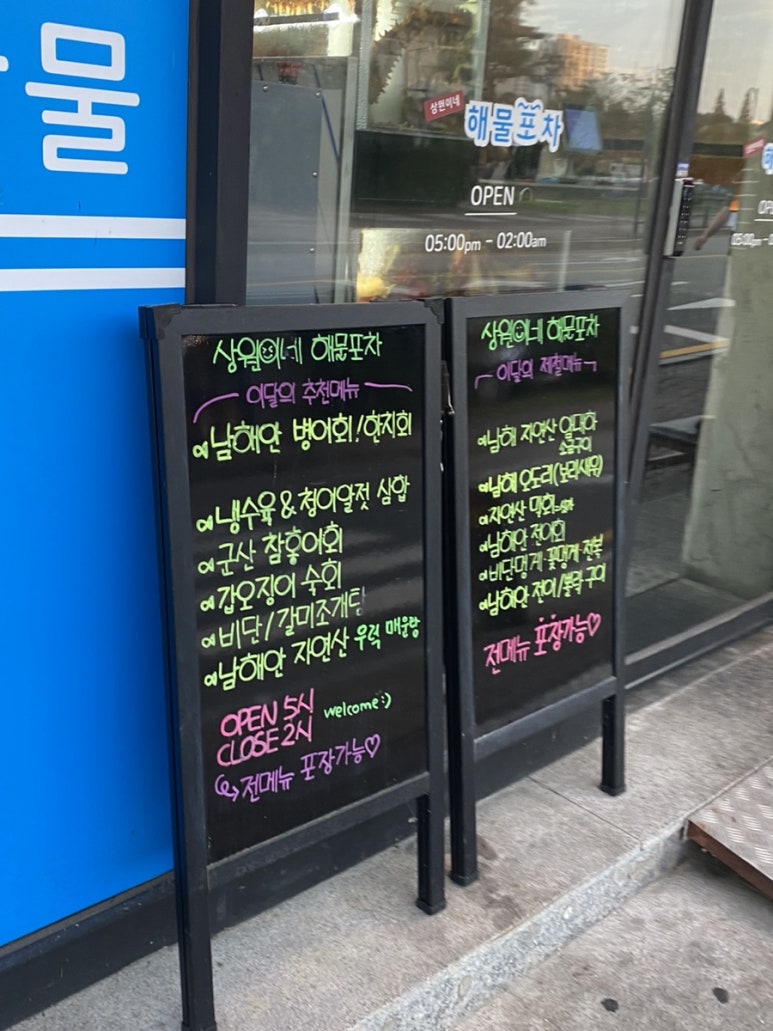 물
상원이네
해물포차
OPEN
05:00pm - 02:00am
상원이네 해물포차
이달의 추천메뉴
남해안 병어회!한치회
냉수육 & 청어알젓 삼합
군산 참홍어회
갑오징어 숙회
비단/갈미조개탕
남해안 자연산 우럭 매운탕
OPEN 5시
CLOSE 2시
welcome:)
전메뉴 포장가능♡
상원이네 해물포차
이달의 제철메뉴
남해 자연산 왕대하
소금구이
남해 오도리(보리새우)
자연산 막회
남해안 전어회
비단멍게·꽃멍게·전복
남해안 전어/볼락 구이
전메뉴 포장가능♡